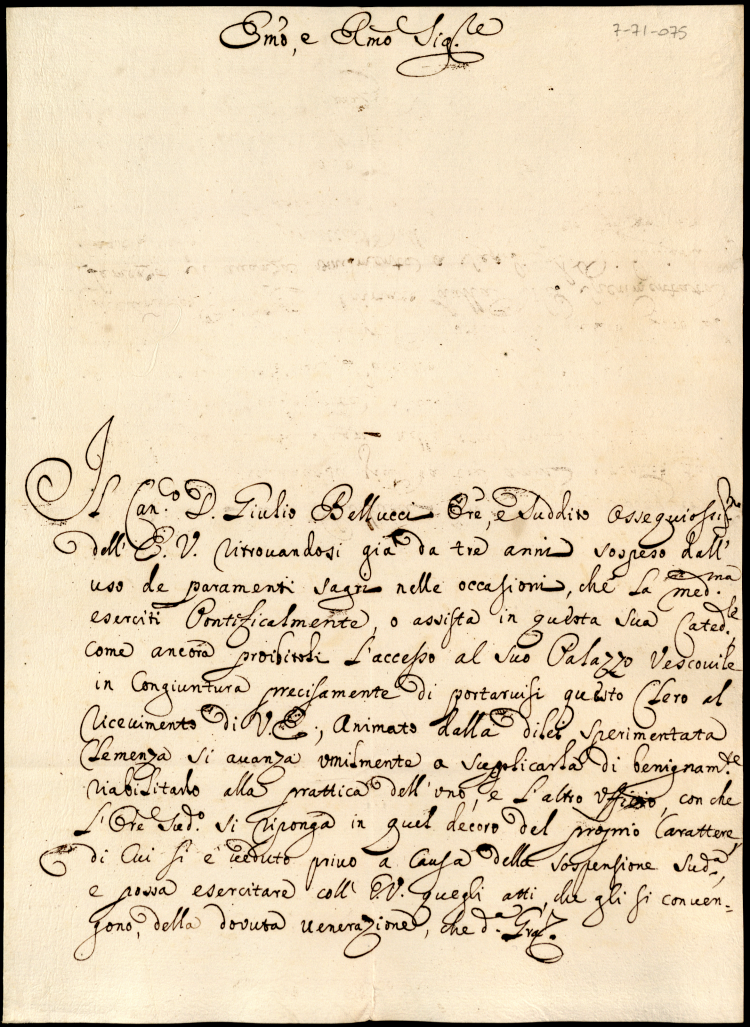 Emo, e Rmo Sig.re
7-71-075
Il Can.co D. Giulio Bellucci Ore, e Suddito ossequiossi.mo
dell' E. V. ritrovandosi già da tre anni sospeso dall'
uso de paramenti sagri nelle occasioni, che la med.ma
eserciti Pontificalmente, o assista in questa sua Cated.le
come ancora proibitoli l'accesso al suo Palazzo Vescovile
in Congiuntura precisamente di portarvisi questo Clero al
ricevimento di V. E., Animato dalla di lei sperimentata
Clemenza si avanza umilmente a supplicarla di benignam.te
riabilitarlo alla prattica dell' uno, e l'altro uffizio, con che
l'Ore Sud.o si riponga in quel decoro del proprio Carattere,
di Cui si è veduto privo a Causa della sospensione Sud.a,
e possa esercitare coll' E. V. quegli atti, che gli si conven-
gono, della dovuta venerazione, che d.a Graz.